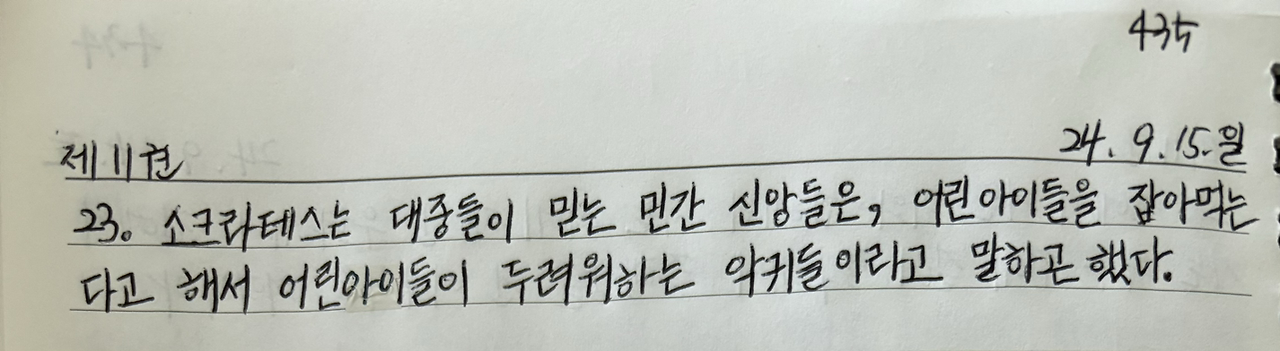 435
제11권
24. 9. 15. 일
23. 소크라테스는 대중들이 믿는 민간 신앙들은, 어린아이들을 잡아먹는
다고 해서 어린아이들이 두려워하는 악귀들이라고 말하곤 했다.